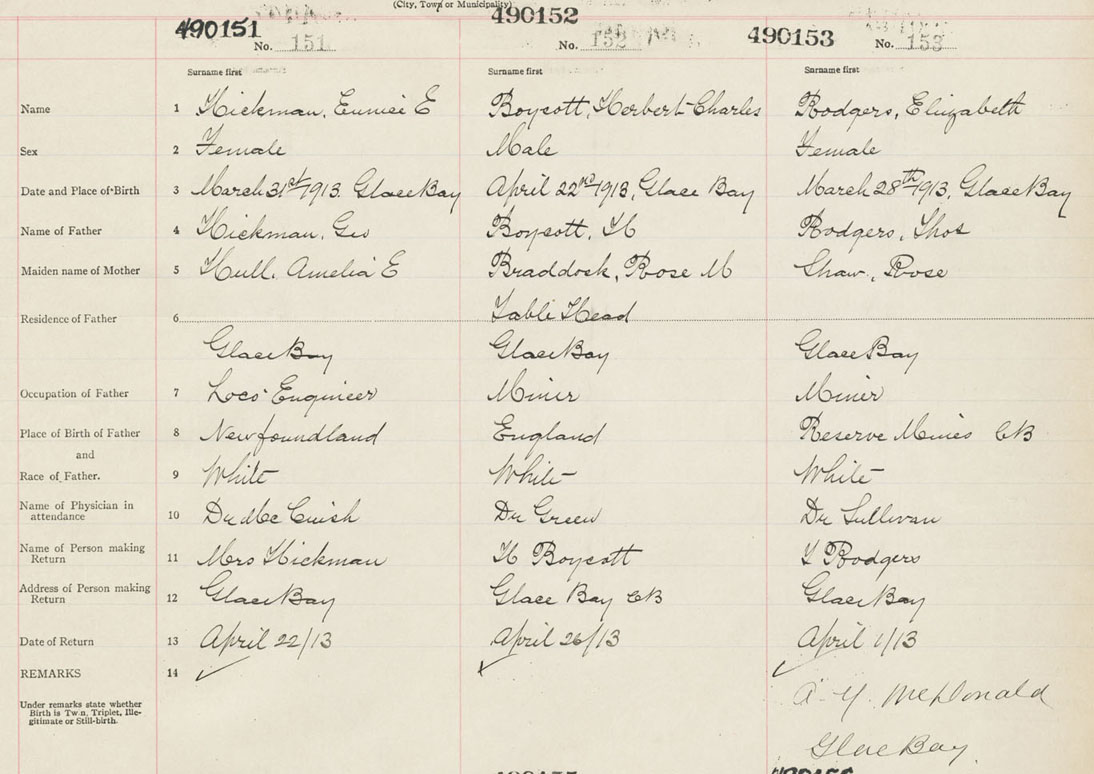 (City, Town or Municipality)
490151 490152 490153
No. 151 No. 152 No. 153
Surname first Surname first Surname first
Name 1 Hickman, Eunice E Boycott, Herbert Charles Rodgers, Elizabeth
Sex 2 Female Male Female
Date and Place of Birth 3 March 31st 1913 Glace Bay April 22nd 1913, Glace Bay March 28th 1913, Glace Bay
Name of Father 4 Hickman, Geo Boycott, H Rodgers, Thos
Maiden name of Mother 5 Hull, Amelia E Braddock, Rose M Shaw, Rose
Table Head
Residence of Father 6
Glace Bay Glace Bay Glace Bay
Occupation of Father 7 Loco Engineer Miner Miner
Place of Birth of Father 8 Newfoundland England Reserve Mines CB
and
Race of Father. 9 White White White
Name of Physician in attendance 10 Dr Mc Cuish Dr Green Dr Sullivan
Name of Person making Return 11 Mrs Hickman H Boycott T Rodgers
Address of Person making Return 12 Glace Bay Glace Bay CB Glace Bay
Date of Return 13 April 22/13 April 26/13 April 1/13
REMARKS 14
Under remarks state whether
Birth is Twin, Triplet, Ille-
gitimate or Still-birth.
A. McDonald
Glace Bay.